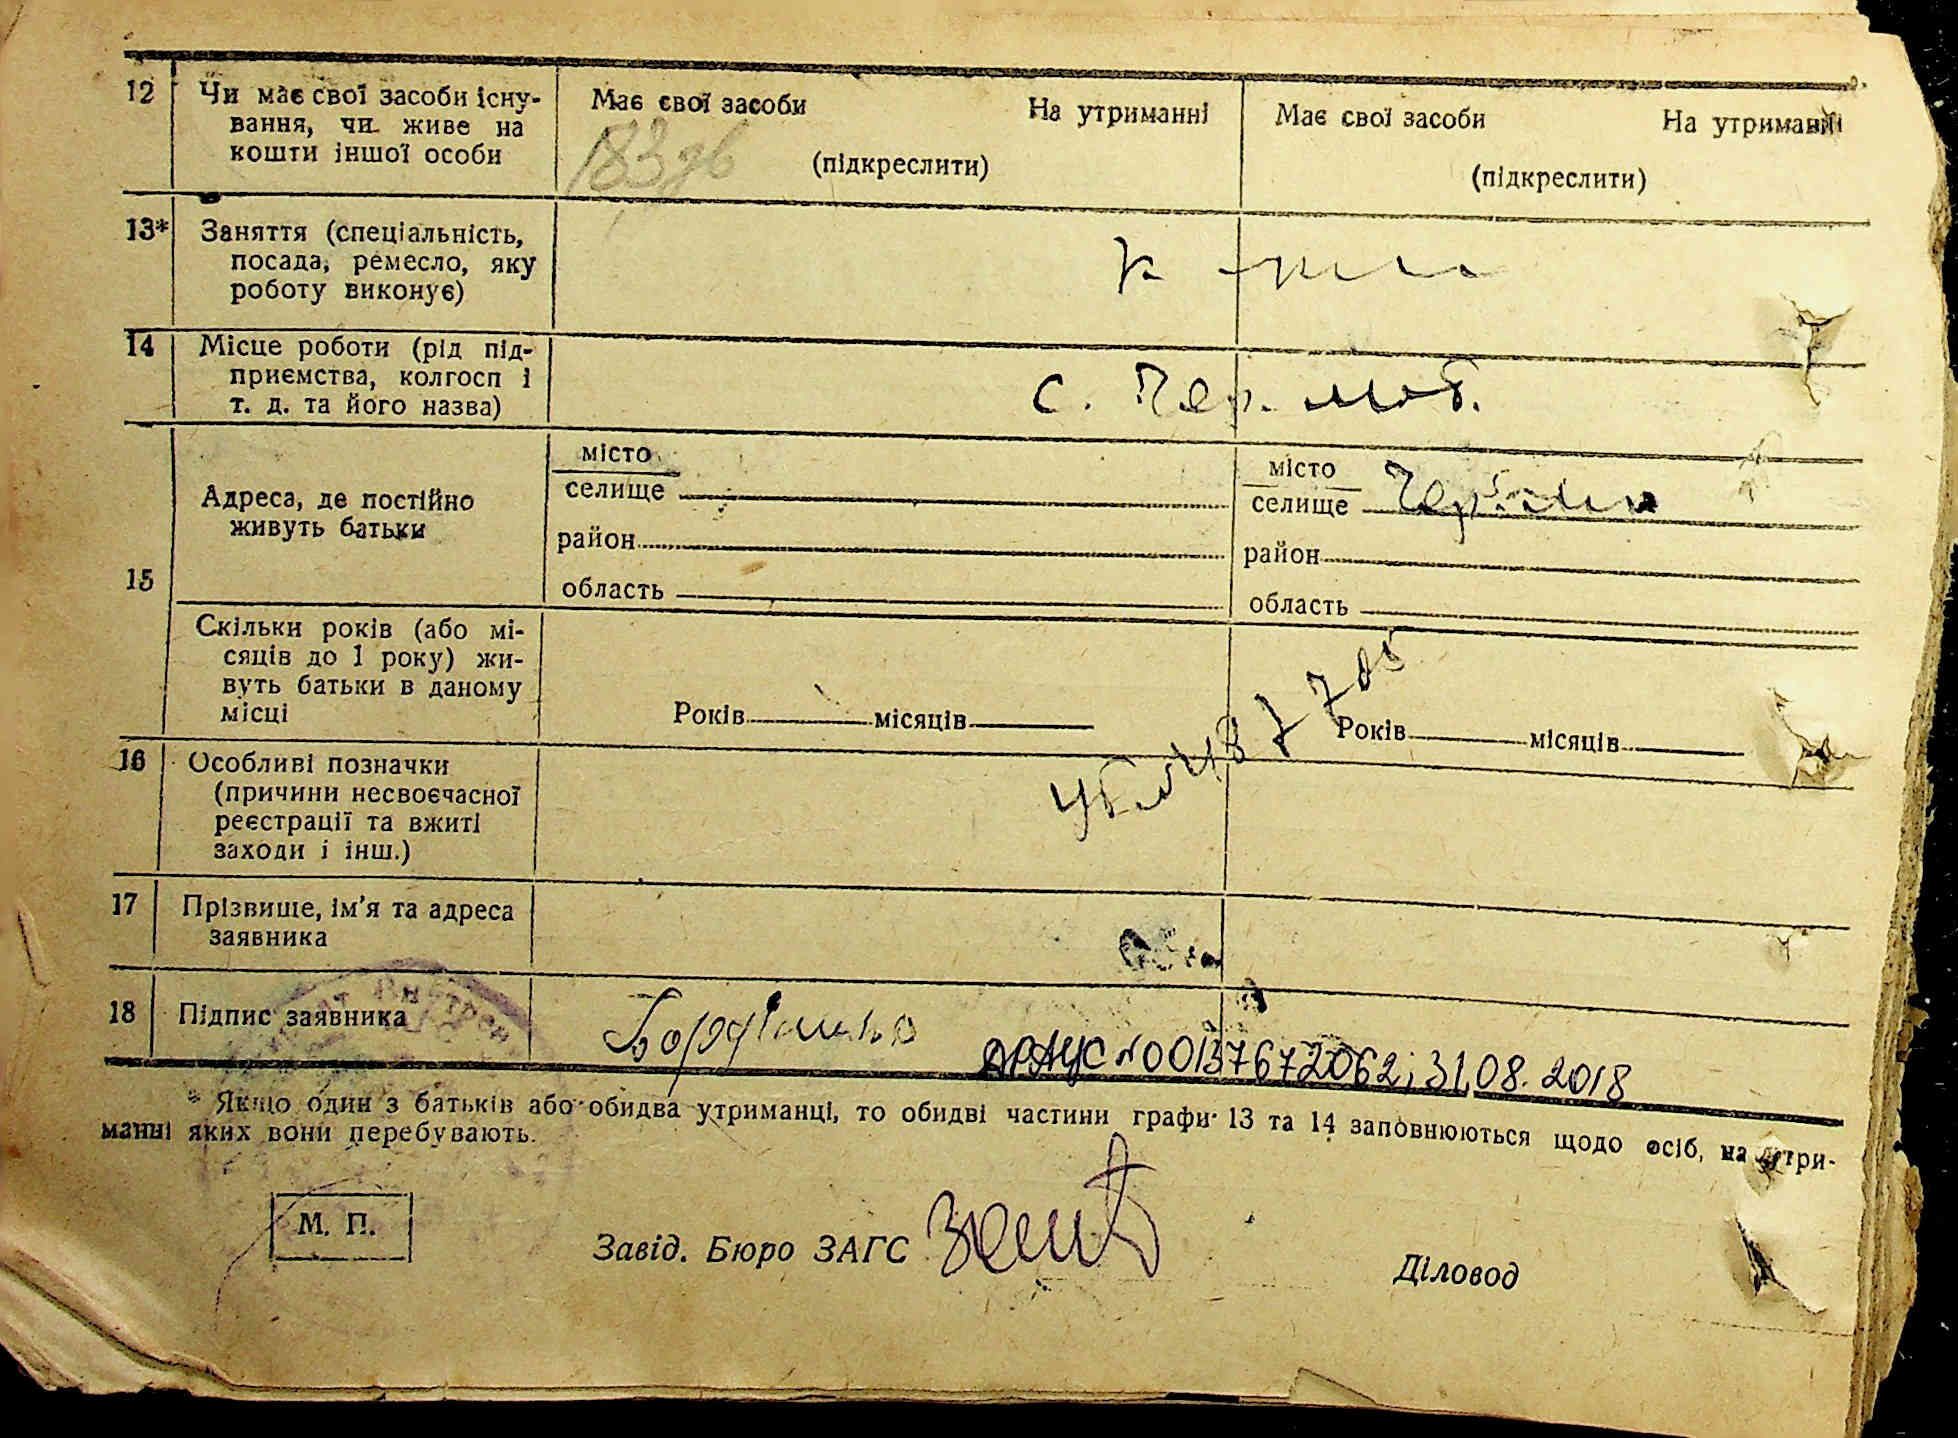 12 Чи має свої засоби існу-
вання, чи живе на
кошти іншої особи
Має свої засоби На утриманні
(підкреслити)
Має свої засоби На утриманні
(підкреслити)
13* Заняття (спеціальність,
посада, ремесло, яку
роботу виконує)
14 Місце роботи (рід під-
приємства, колгосп і
т. д. та його назва)
с. Чер.
15 Адреса, де постійно
живуть батьки
місто
селище
район
область
місто
селище
район
область
Скільки років (або мі-
сяців до 1 року) жи-
вуть батьки в даному
місці
Років місяців
Років місяців
16 Особливі позначки
(причини несвоєчасної
реєстрації та вжиті
заходи і інш.)
17 Прізвище, ім'я та адреса
заявника
18 Підпис заявника
ДРАЦС №00137672062; 31.08.2018
* Якщо один з батьків або обидва утриманці, то обидві частини графи 13 та 14 заповнюються щодо осіб, на утри-
манні яких вони перебувають.
М. П.
Завід. Бюро ЗАГС
Діловод